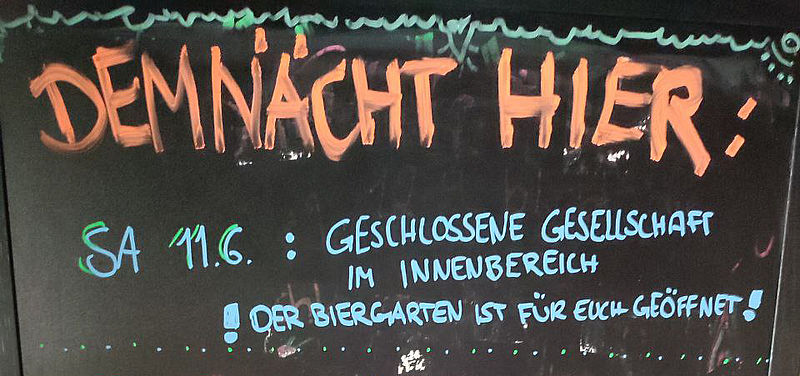 DEMNÄCHT HIER:
SA 11.6. : GESCHLOSSENE GESELLSCHAFT
IM INNENBEREICH
! DER BIERGARTEN IST FÜR EUCH GEÖFFNET!